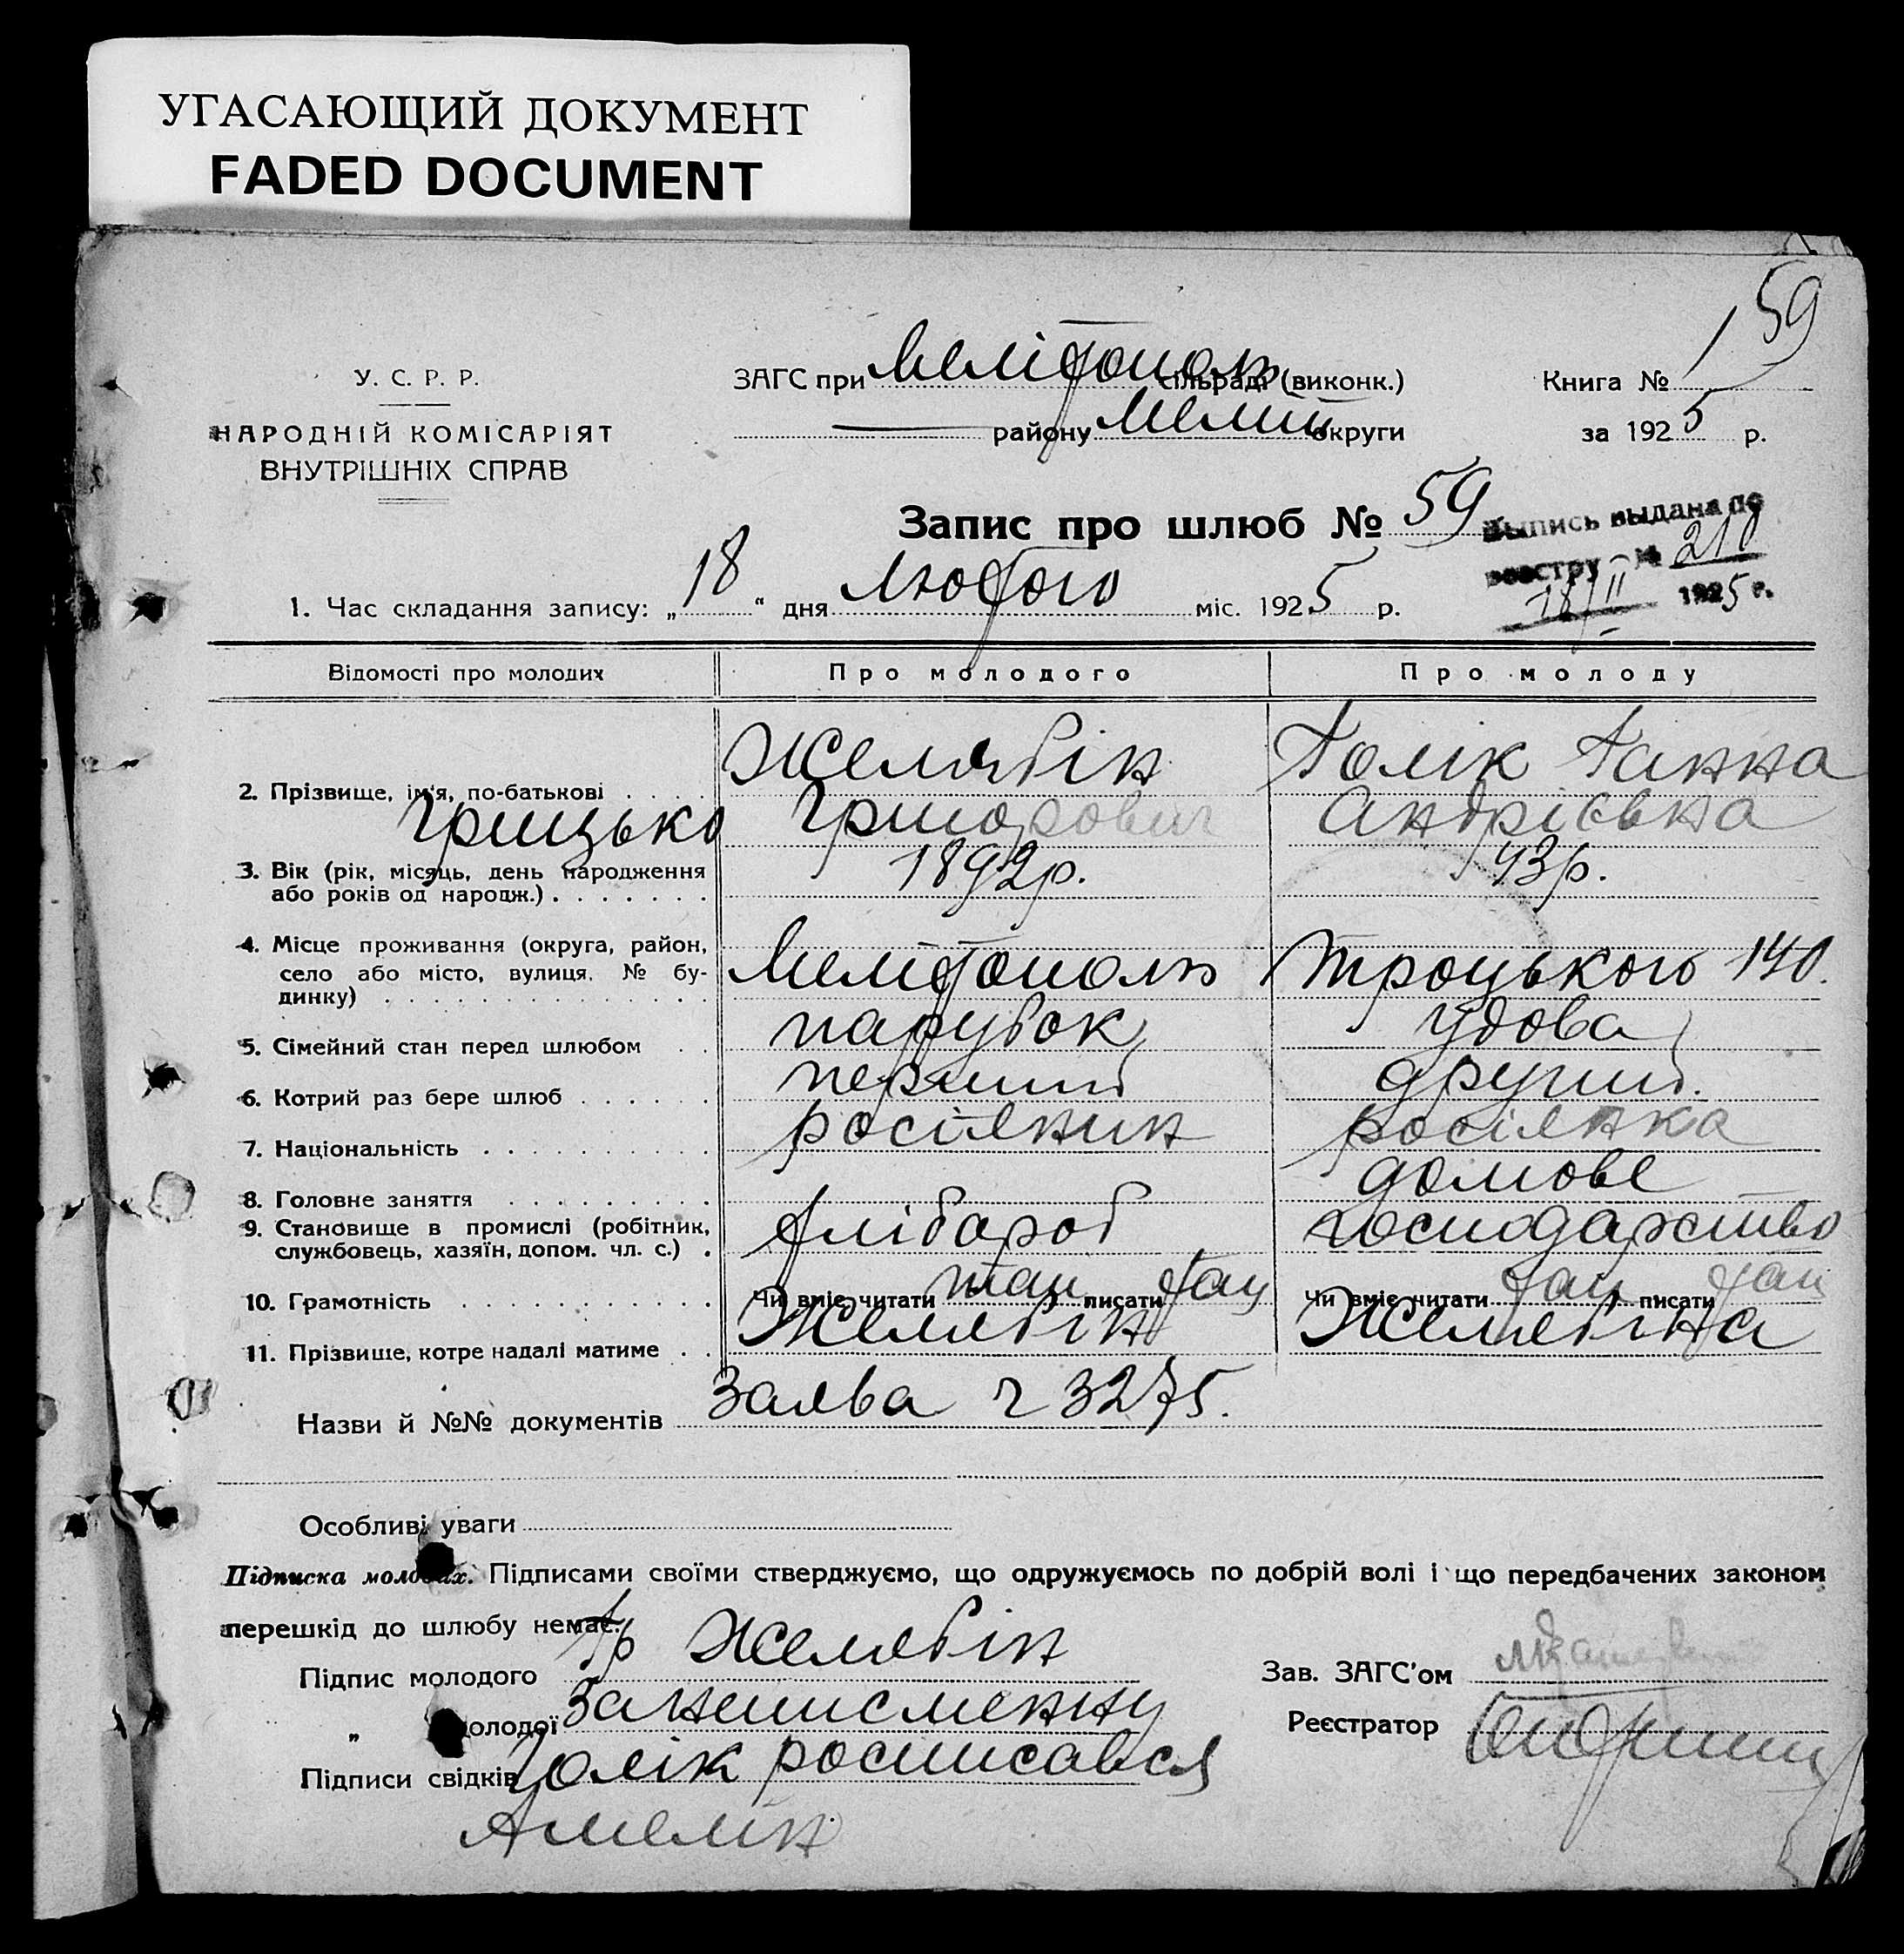 УГАСАЮЩИЙ ДОКУМЕНТ
FADED DOCUMENT
59
У. С. Р. Р.
НАРОДНІЙ КОМІСАРІЯТ
ВНУТРІШНІХ СПРАВ
ЗАГС при Мелітополь сільраді (виконк.)
району Меліт округи
Книга № 1
за 1925 р.
Запис про шлюб № 59
Выпись выдана по
реестру № 210
18/II 1925 г.
1. Час складання запису: „18“ дня Лютого міс. 1925 р.
Відомості про молодих Про молодого Про молоду
2. Прізвище, ім'я, по-батькові Желябін Голік Ганна
Грицько Григорович Андрієвна
3. Вік (рік, місяць, день народження або років од народж.) 1892р. 43р.
4. Місце проживання (округа, район, село або місто, вулиця, № будинку) Мелітополь Троцького 140.
5. Сімейний стан перед шлюбом парубок удова
6. Котрий раз бере шлюб перший другий.
7. Національність росіянин росіянка
8. Головне заняття домове
9. Становище в промислі (робітник, службовець, хазяїн, допом. чл. с.) хлібороб господарство
10. Грамотність Чи вміє читати так писати так Чи вміє читати так писати так
11. Прізвище, котре надалі матиме Желябін Желябіна
Назви й №№ документів Заява ч 3275.
Особливі уваги
Підписка молодих. Підписами своїми стверджуємо, що одружуємось по добрій волі і що передбачених законом
перешкід до шлюбу немає.
Підпис молодого Гр Желябін
„ молодої За неписменну
Підписи свідків Голік росписався
Амелін
Зав. ЗАГС'ом
Реєстратор